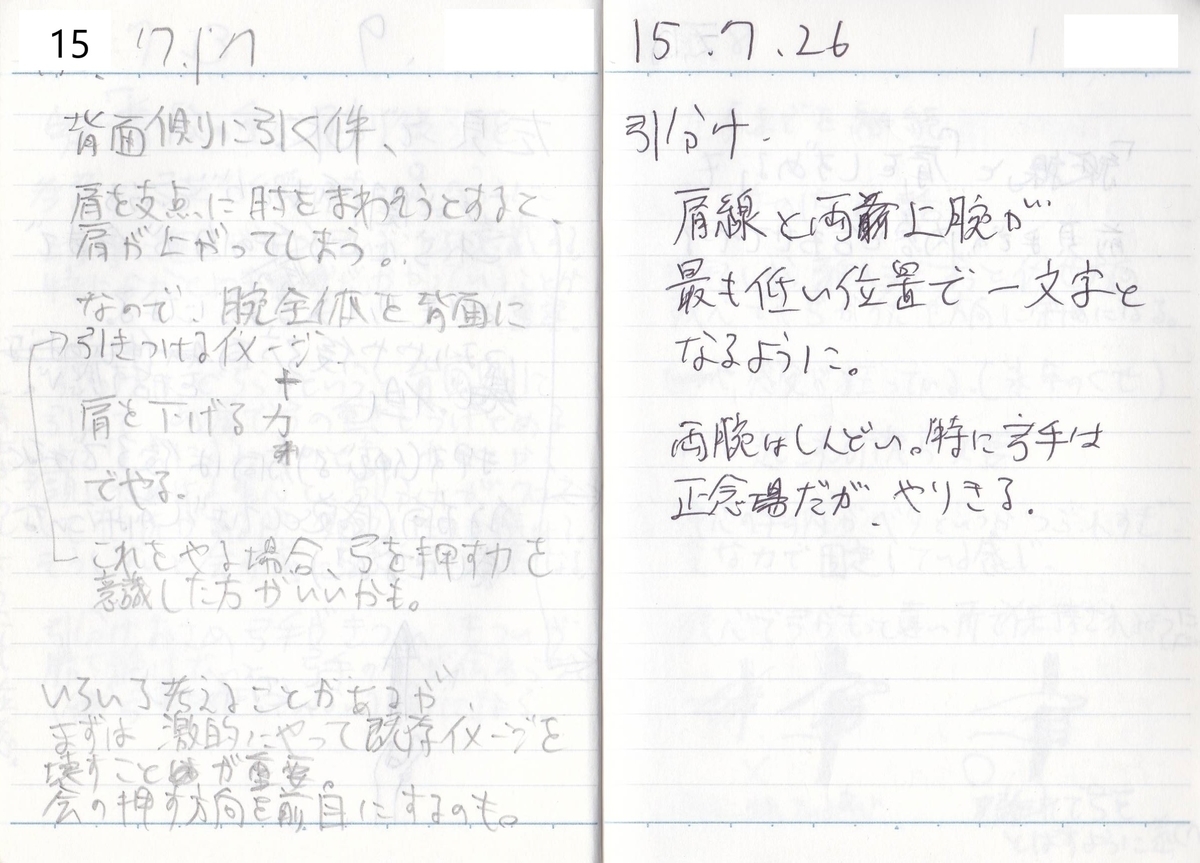 15 7.17
背面側りに引く件、
肩を支点に肘をまわそうとすると、
肩が上がってしまう。
なので、腕全体を背面に
引きつけるイメージ
+
肩を下げる力
でやる。
これをやる場合、弓を押す力を
意識した方がいいかも。
いろいろ考えることがあるが、
まずは激的にやって既存イメージを
壊すことが重要。
会の押す方向を前目にするのも。
15.7.26
引分け
肩線と両上腕が
最も低い位置で一文字と
なるように。
両腕はしんどい。特に弓手は
正念場だが、やりきる。